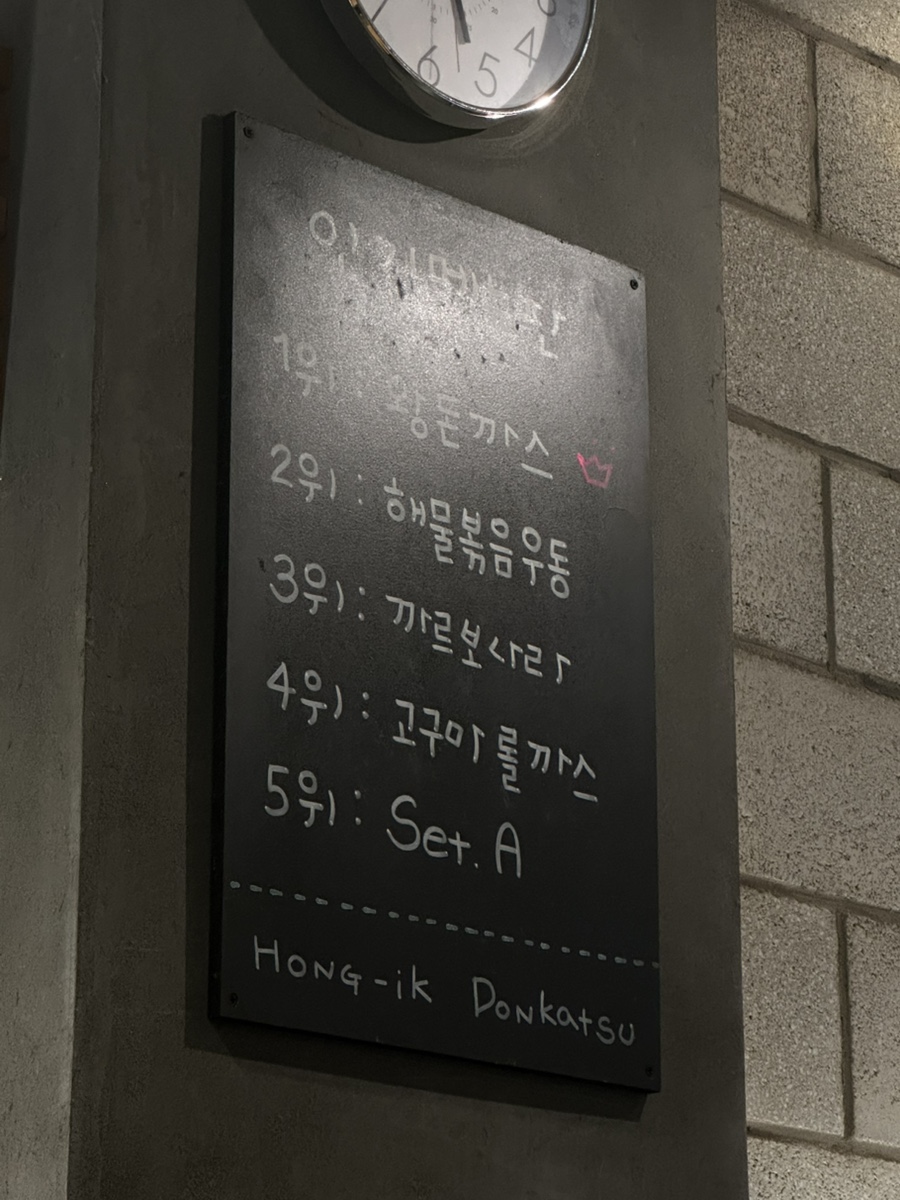 6 5 4
1위 : 왕돈까스
2위 : 해물볶음우동
3위 : 까르보나라
4위 : 고구마 롤까스
5위 : Set. A
HONG-ik DONkatsu